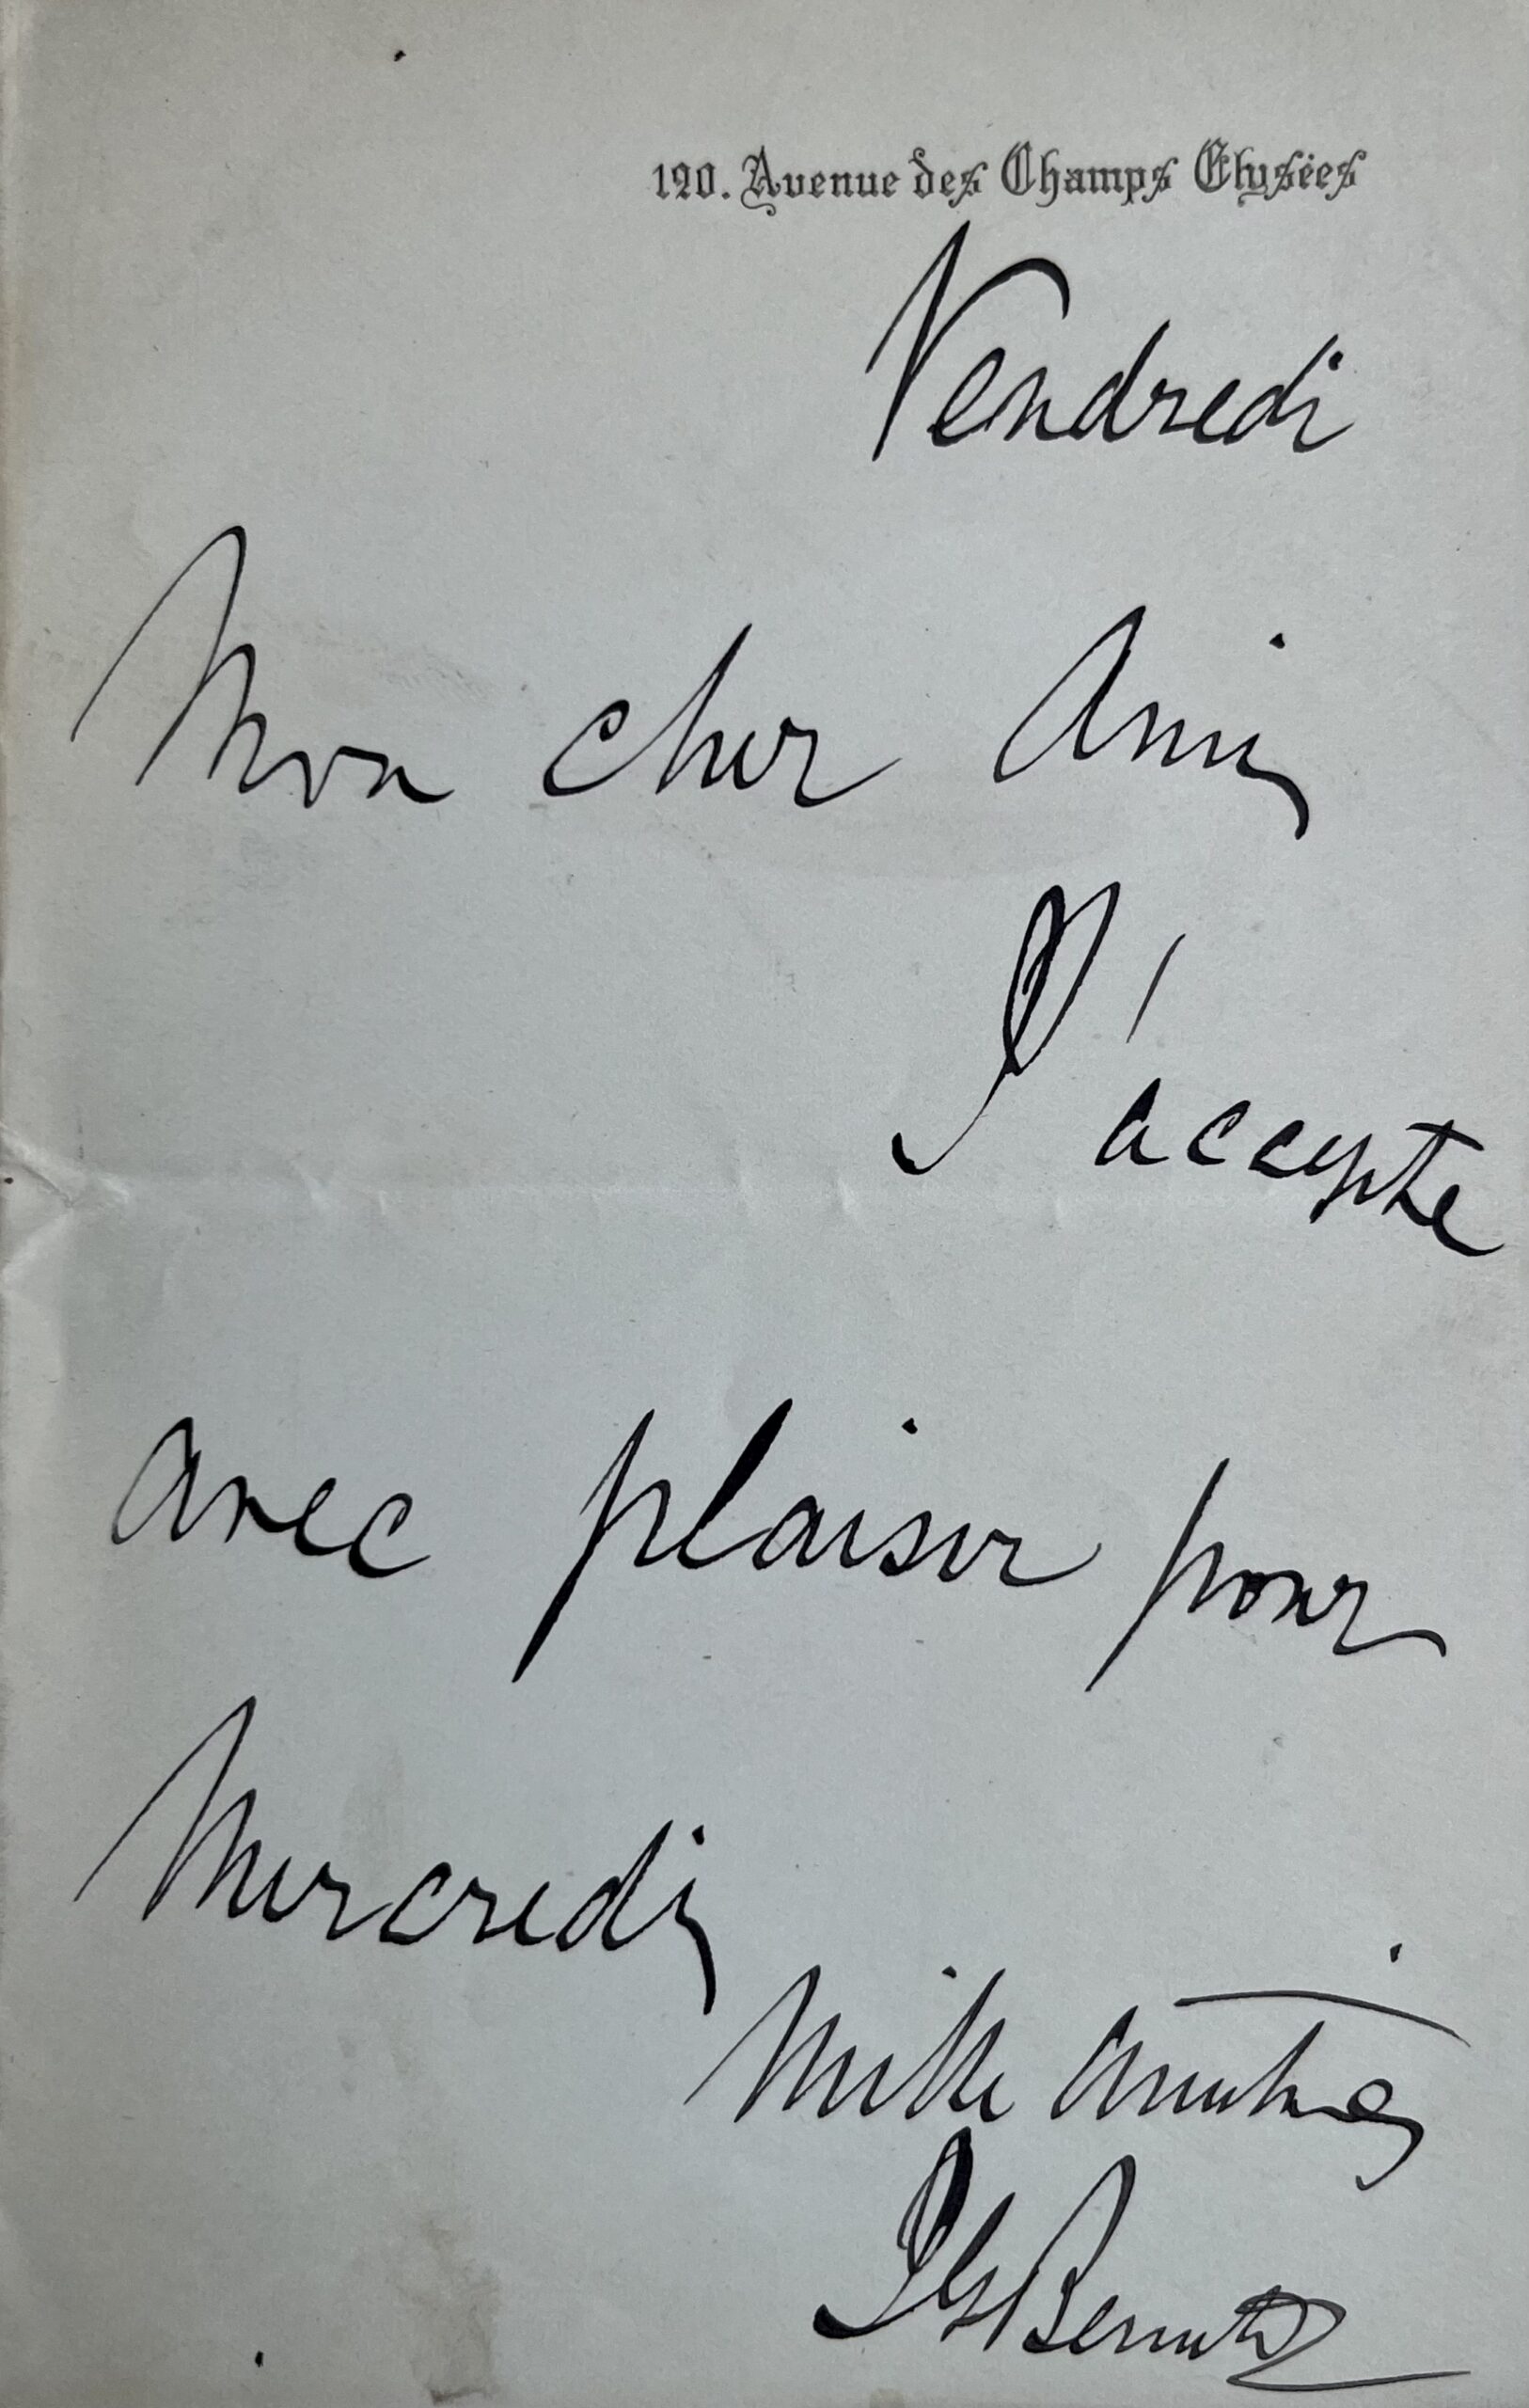 120. Avenue des Champs Elysées
Vendredi
Mon cher Ami,
J'accepte
avec plaisir pour
Mercredi,
Mille amitiés